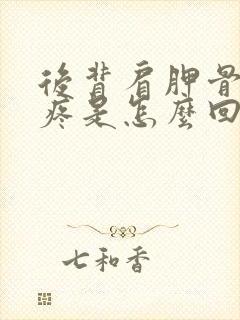 後背肩胛骨
疼是怎麼回
七和香